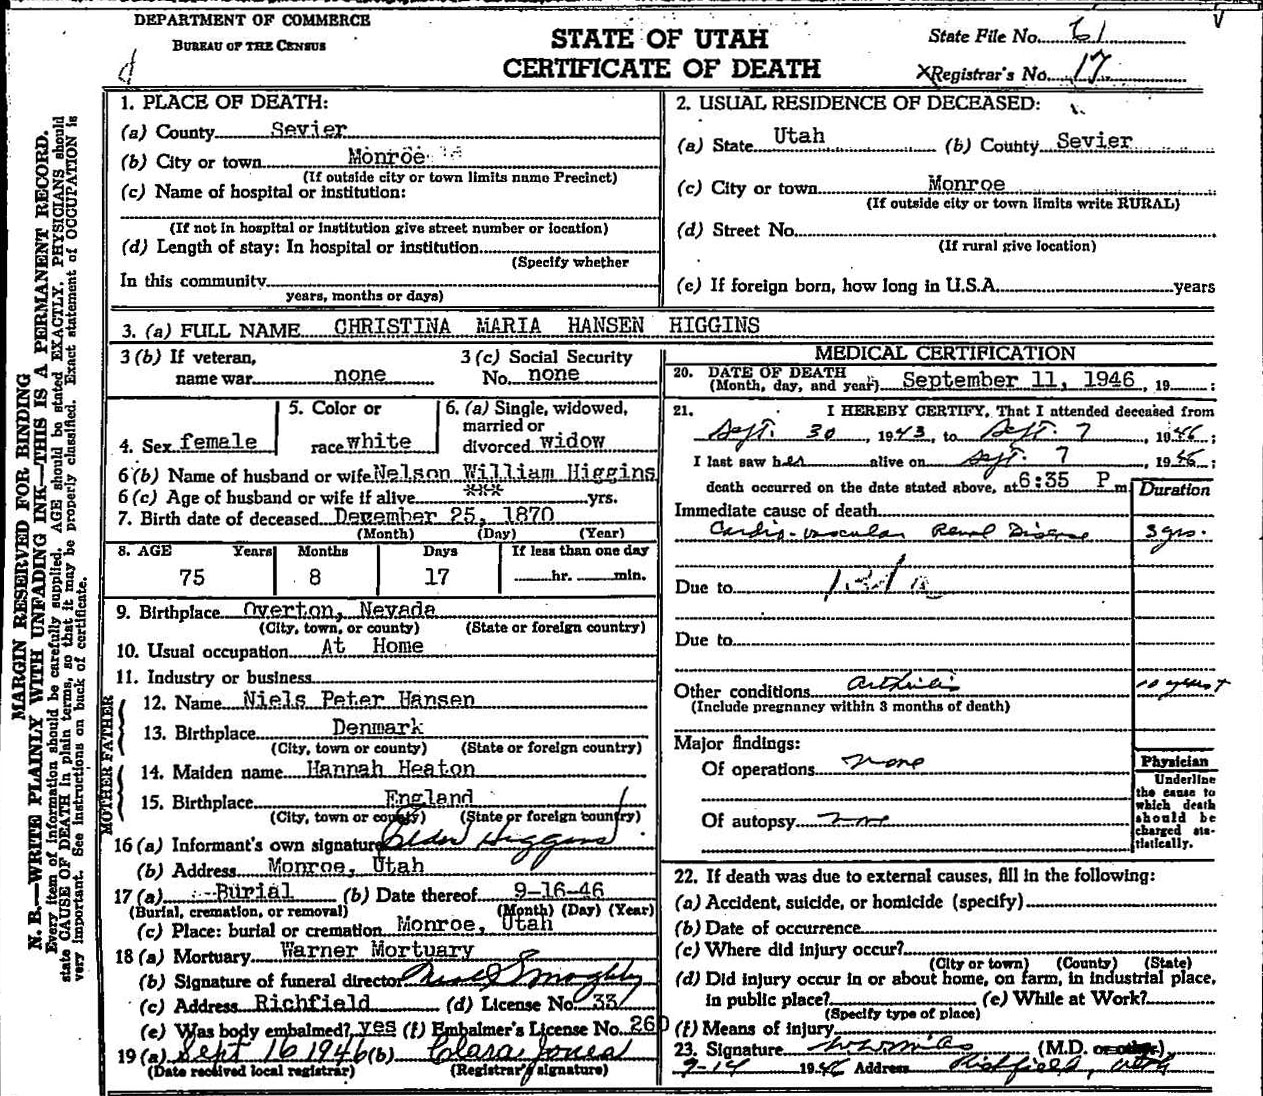 DEPARTMENT OF COMMERCE
BUREAU OF THE CENSUS
STATE OF UTAH
CERTIFICATE OF DEATH
State File No. 61
XRegistrar's No. 17
MARGIN RESERVED FOR BINDING
N. B.—WRITE PLAINLY WITH UNFADING INK—THIS IS A PERMANENT RECORD.
Every item of information should be carefully supplied. AGE should be stated EXACTLY. PHYSICIANS should
state CAUSE OF DEATH in plain terms, so that it may be properly classified. Exact statement of OCCUPATION is
very important. See instructions on back of certificate.
1. PLACE OF DEATH:
(a) County Sevier
(b) City or town Monroe
(If outside city or town limits name Precinct)
(c) Name of hospital or institution:
(If not in hospital or institution give street number or location)
(d) Length of stay: In hospital or institution
(Specify whether
In this community
years, months or days)
2. USUAL RESIDENCE OF DECEASED:
(a) State Utah (b) County Sevier
(c) City or town Monroe
(If outside city or town limits write RURAL)
(d) Street No.
(If rural give location)
(e) If foreign born, how long in U.S.A. years
3. (a) FULL NAME CHRISTINA MARIA HANSEN HIGGINS
3 (b) If veteran, name war none
3 (c) Social Security No. none
4. Sex female
5. Color or race white
6. (a) Single, widowed, married or divorced widow
6 (b) Name of husband or wife Nelson William Higgins
6 (c) Age of husband or wife if alive *** yrs.
7. Birth date of deceased December 25, 1870
(Month) (Day) (Year)
8. AGE Years Months Days If less than one day
75 8 17 hr. min.
9. Birthplace Overton, Nevada
(City, town, or county) (State or foreign country)
10. Usual occupation At Home
11. Industry or business
FATHER
12. Name Niels Peter Hansen
13. Birthplace Denmark
(City, town or county) (State or foreign country)
MOTHER
14. Maiden name Hannah Heaton
15. Birthplace England
(City, town or county) (State or foreign country)
16 (a) Informant's own signature Higgins
(b) Address Monroe, Utah
17 (a) Burial (b) Date thereof 9-16-46
(Burial, cremation, or removal) (Month) (Day) (Year)
(c) Place: burial or cremation Monroe, Utah
18 (a) Mortuary Warner Mortuary
(b) Signature of funeral director
(c) Address Richfield (d) License No. 33
(e) Was body embalmed? yes (f) Embalmer's License No. 260
19 (a) Sept 16 1946 (b) Clara Jones
(Date received local registrar) (Registrar's signature)
MEDICAL CERTIFICATION
20. DATE OF DEATH
(Month, day, and year) September 11, 1946, 19 ;
21. I HEREBY CERTIFY, That I attended deceased from
Sept. 30, 1943, to Sept. 7, 1946;
I last saw her alive on Sept. 7, 1946;
death occurred on the date stated above, at 6:35 P m
Duration
Immediate cause of death
Cardio-vascular Renal Disease 3 yrs.
Due to
Due to
Other conditions Arthritis 10 years+
(Include pregnancy within 3 months of death)
Major findings:
Of operations none
Of autopsy none
Physician
Underline
the cause to
which death
should be
charged sta-
tistically.
22. If death was due to external causes, fill in the following:
(a) Accident, suicide, or homicide (specify)
(b) Date of occurrence
(c) Where did injury occur?
(City or town) (County) (State)
(d) Did injury occur in or about home, on farm, in industrial place,
in public place? (e) While at Work?
(Specify type of place)
(f) Means of injury
23. Signature (M.D. or other)
9-14 1946 Address Richfield, Utah